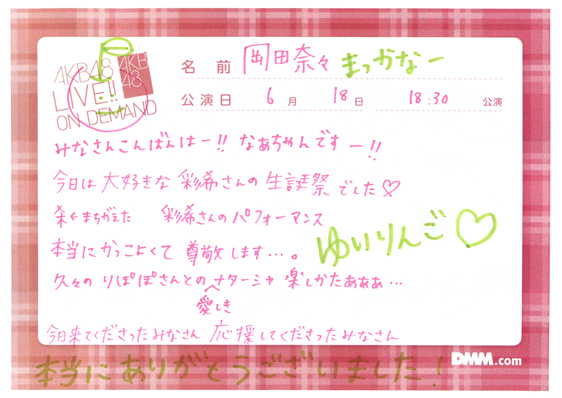 AKB48
LIVE!!
ON DEMAND
AKB
48
名 前 岡田奈々 まっかなー
公演日 6月 18日 18:30 公演
みなさんこんばんはー!! なぁちゃんですー!!
今日は大好きな 彩希さんの生誕祭でした♡
←まちがえた 彩希さんのパフォーマンス
本当にかっこよくて 尊敬します…。
ゆいりんご♡
久々の りぽぽさんとのナターシャ 楽しかたあぁぁ…
愛しき
今日来てくださったみなさん 応援してくださったみなさん
本当にありがとうございました!
DMM.com